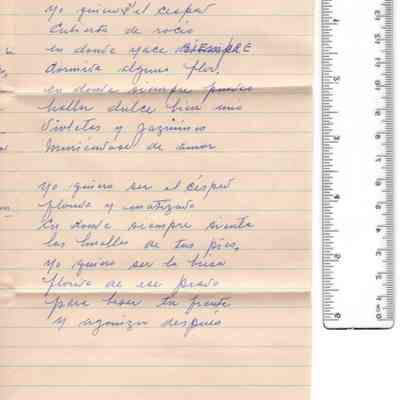 Yo quiero el césped
Cubierto de rocío
en donde yace SIEMPRE
dormida alguna flor,
en donde siempre puedas
hallar dulce bien mio
Violetas y jazmines
Muriéndose de amor
Yo quiero ser el césped
florido y matizado
En donde siempre sienta
las huellas de tus pies,
Yo quiero ser la brisa
florida de ese prado
para besar tu frente
y agonizar después